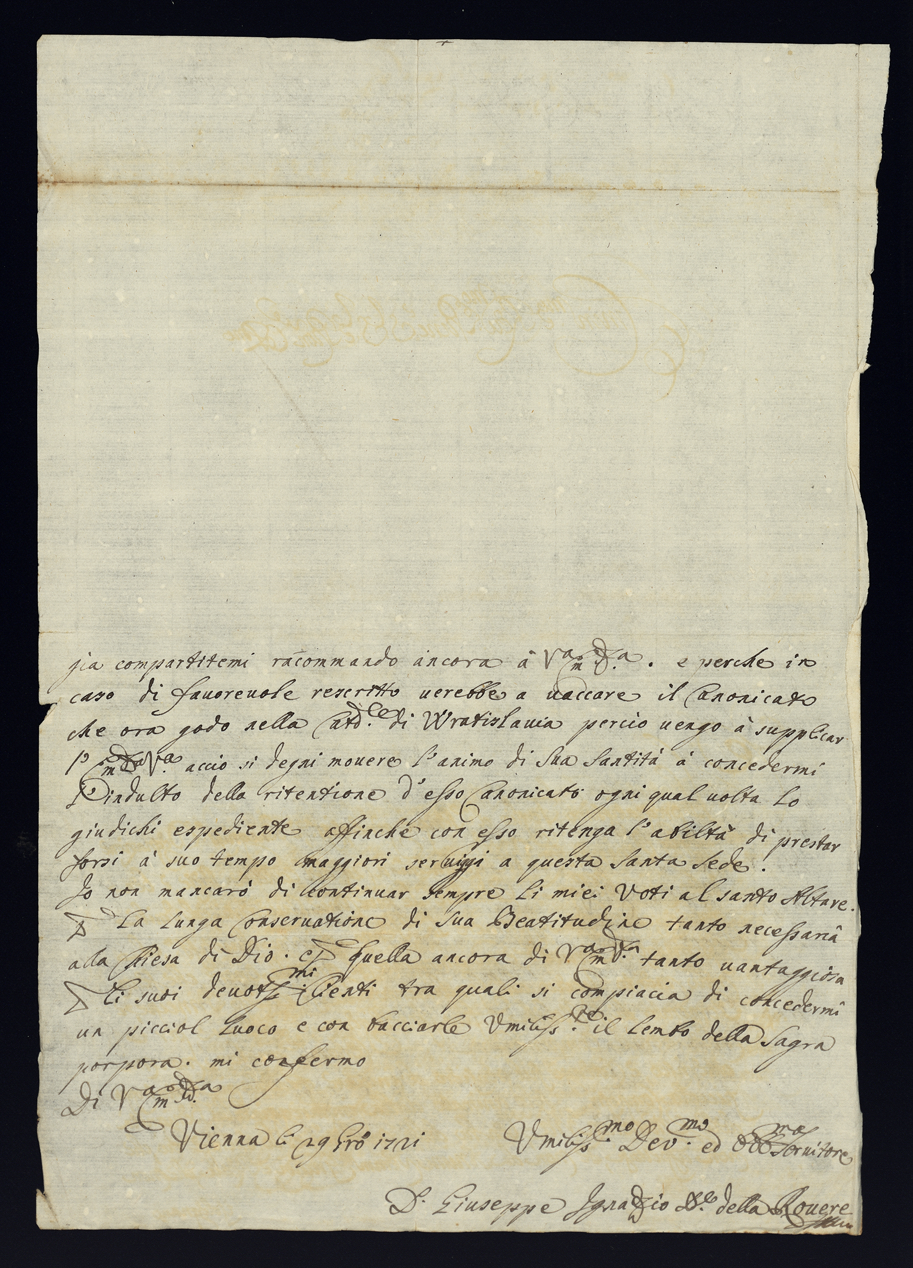 già compartitemi raccommando ancora à V.ª Em.ª . e perche in
caso di favorevole rescritto verebbe a vaccare il Canonicato
che ora godo nella Catd.le di Wratislavia perciò vengo à supplicar
l' Em.ª V.ª acciò si degni movere l'animo di Sua Santità à concedermi
l'indulto della ritentione d'esso Canonicato ogni qual volta lo
giudichi espediente affinche con esso ritenga l'abiltà di prestar
forsi à suo tempo maggiori serviggi a questa Santa Sede.
Io non mancarò di continuar sempre li miei Voti al santo Altare.
La lunga Conservatione di Sua Beatitudine tanto necessaria
alla Chiesa di Dio. e quella ancora di V.ª Em.ª tanto vantaggiosa
li suoi devot.mi Clienti tra quali si compiacia di concedermi
un picciol luoco e con bacciarle Umiliss.te il lembo della Sagra
porpora. mi confermo
Di V.ª Em.ª
Vienna li 29 1721
Umiliss.mo Dev.mo ed Obb.mo Servitore
D. Giuseppe Ignazio della Rovere